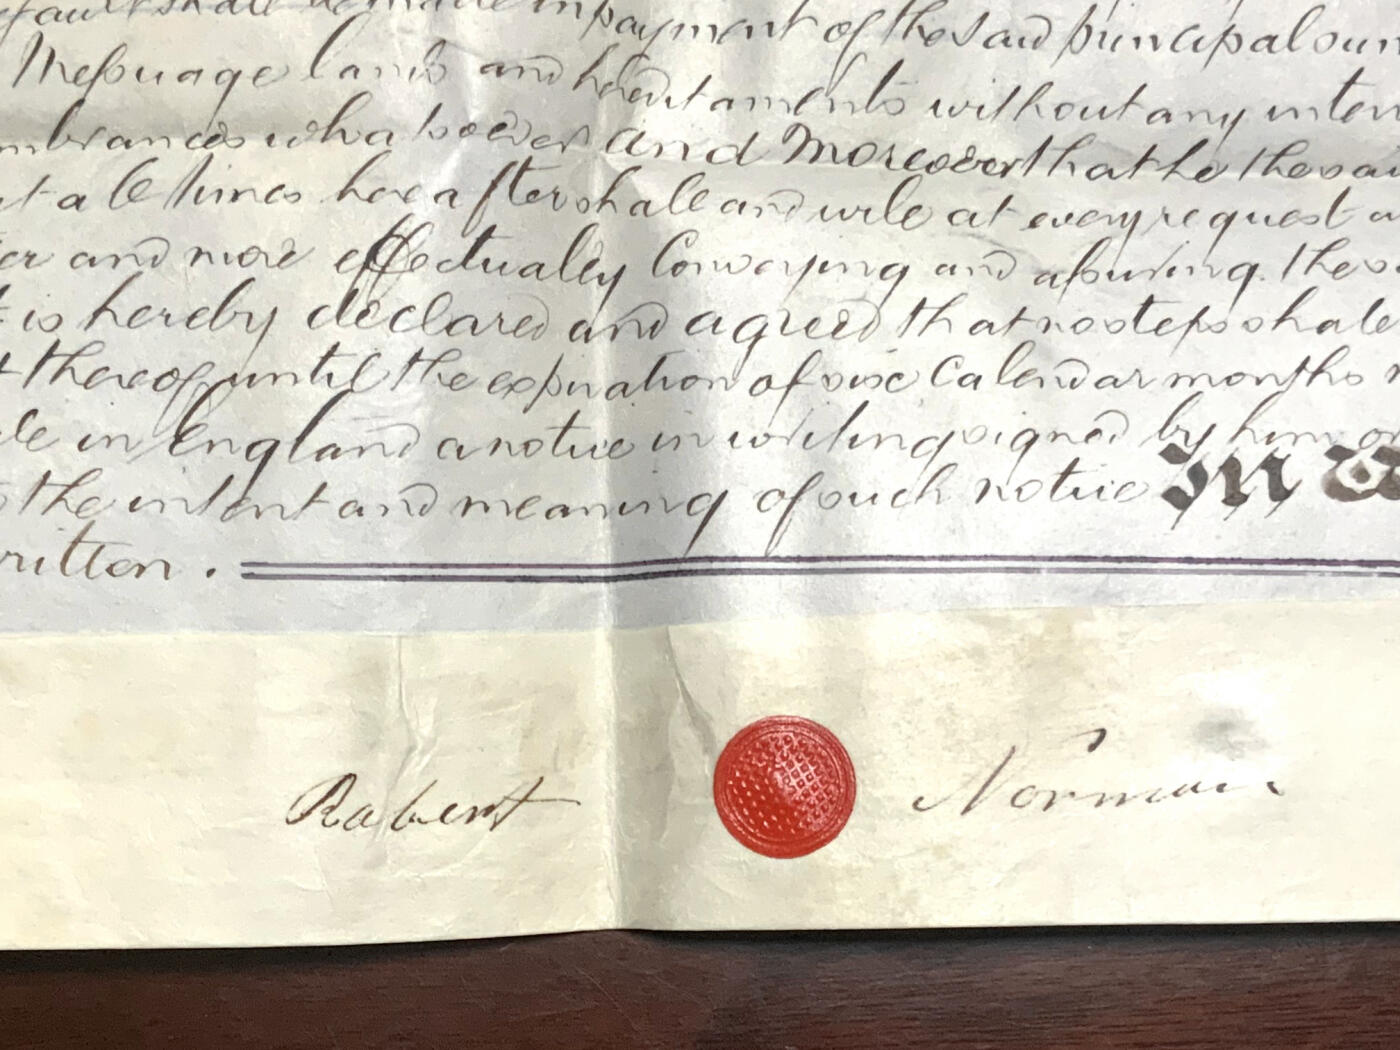 efault shall be made in payment of the said principal sum
Messuage lands and hereditaments without any inter
mbrances whatsoever And Moreover that he the said
at all times hereafter shall and will at every request a
er and more effectually Conveying and assuring the s
t is hereby declared and agreed that no steps shall
t thereof until the expiration of six Calendar months
le in England a notice in writing signed by him or
the intent and meaning of such notice In W
ritten.
Robert Norman